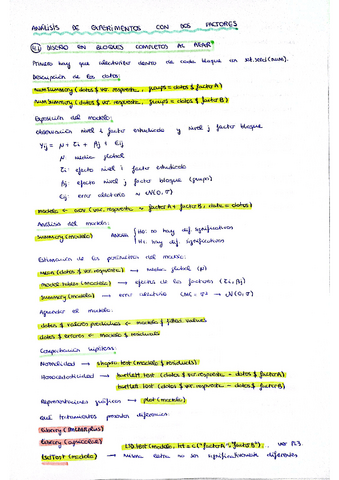 ANÁLISIS DE EXPERIMENTOS CON DOS FACTORES
DISEÑO EN BLOQUES COMPLETOS AL AZAR
Primero hay que aleatorizar dentro de cada bloque con set.seed(num).
Descripción de los datos:
numSummary (datos $ var. respuesta, groups = datos $ factorA)
numSummary (datos $ var. respuesta, groups = datos $ factorB)
Exposición del modelo:
observación nivel i factor estudiado y nivel j factor bloque
Yij = μ + τi + βj + εij
μ: media global
τi: efecto nivel i factor estudiado
βj: efecto nivel j factor bloque (grupo)
εij: error aleatorio ~ N(0, σ)
modelo <- aov (var. respuesta ~ factorA + factorB, data = datos)
Análisis del modelo:
summary (modelo) ANOVA H0: no hay dif. significativas
H1: hay dif. significativas
Estimación de los parámetros del modelo:
mean (datos $ var. respuesta) → media global (μ)
model.tables (modelo) → efectos de los factores (τi, βj)
summary (modelo) → error aleatorio → N(0, σ)
Agrandar el modelo:
datos $ valores predichos <- modelo $ fitted.values
datos $ errores <- modelo $ residuals
Comprobación hipótesis:
Normalidad → shapiro.test (modelo $ residuals)
Homocedasticidad → bartlett.test (datos $ var.respuesta ~ datos $ factorA)
bartlett.test (datos $ var.respuesta ~ datos $ factorB)
Representaciones gráficas → plot (modelo)
Qué tratamientos presentan diferencias:
library (agricolae)
LSD.test (modelo, trt = c("factorA", "factorB")...
→ misma letra no son significativamente diferentes